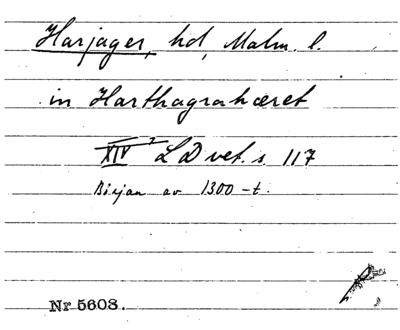 Harjager, hd, Malm. l.
in Harthagrahæret
XIV² LD vet. s. 117
Början av 1300-t.
Nr 5603.